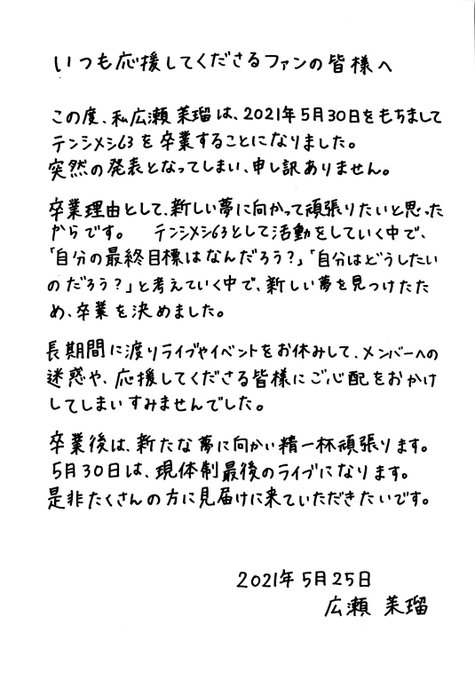 いつも応援してくださるファンの皆様へ
この度、私広瀬茉瑠は、2021年5月30日をもちまして
テンシメシ63を卒業することになりました。
突然の発表となってしまい、申し訳ありません。
卒業理由として、新しい夢に向かって頑張りたいと思った
からです。 テンシメシ63として活動をしていく中で、
「自分の最終目標はなんだろう?」「自分はどうしたい
のだろう?」と考えていく中で、新しい夢を見つけたた
め、卒業を決めました。
長期間に渡りライブやイベントをお休みして、メンバーへの
迷惑や、応援してくださる皆様にご心配をおかけ
してしまいすみませんでした。
卒業後は、新たな夢に向かい精一杯頑張ります。
5月30日は、現体制最後のライブになります。
是非たくさんの方に見届けに来ていただきたいです。
2021年5月25日
広瀬 茉瑠